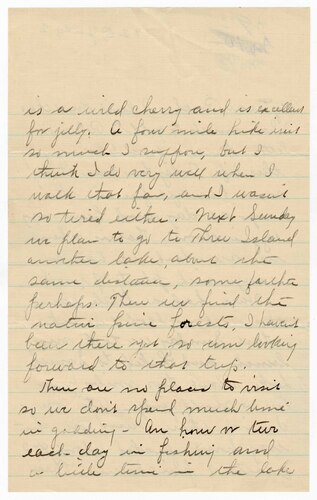 is a wild cherry and is excellent
for jelly. A four mile hike isn't
so much I suppose, but I
think I do very well when I
walk that far, and I wasn't
so tired either. Next Sunday
we plan to go to Three Island
another lake, about the
same distance, some farther
perhaps. There we find the
native pine forests, I haven't
been there yet so am looking
forward to that trip.
There are no places to visit
so we don't spend much time
in gadding - An hour or two
each day in fishing and
a little time in the lake